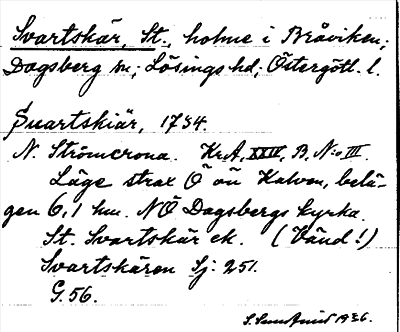 Svartskär, St., holme i Bråviken;
Dagsberg sn; Lösings hd; Östergötl. l.
Suartskiär, 1734.
N. Strömcrona. Kr.A, XXIV, B. N:o III.
Läge strax Ö om Kalven, belä-
gen 6,1 km. NÖ Dagsbergs kyrka.
St. Svartskär ek. (Vänd!)
Svartskären Sj: 251.
G. 56.
1936.